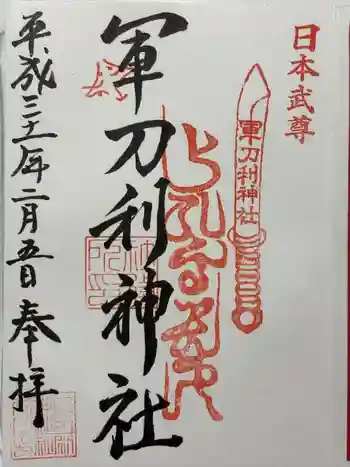 日本武尊
軍刀利神社
軍刀利神社
平成三十一年二月五日奉拝